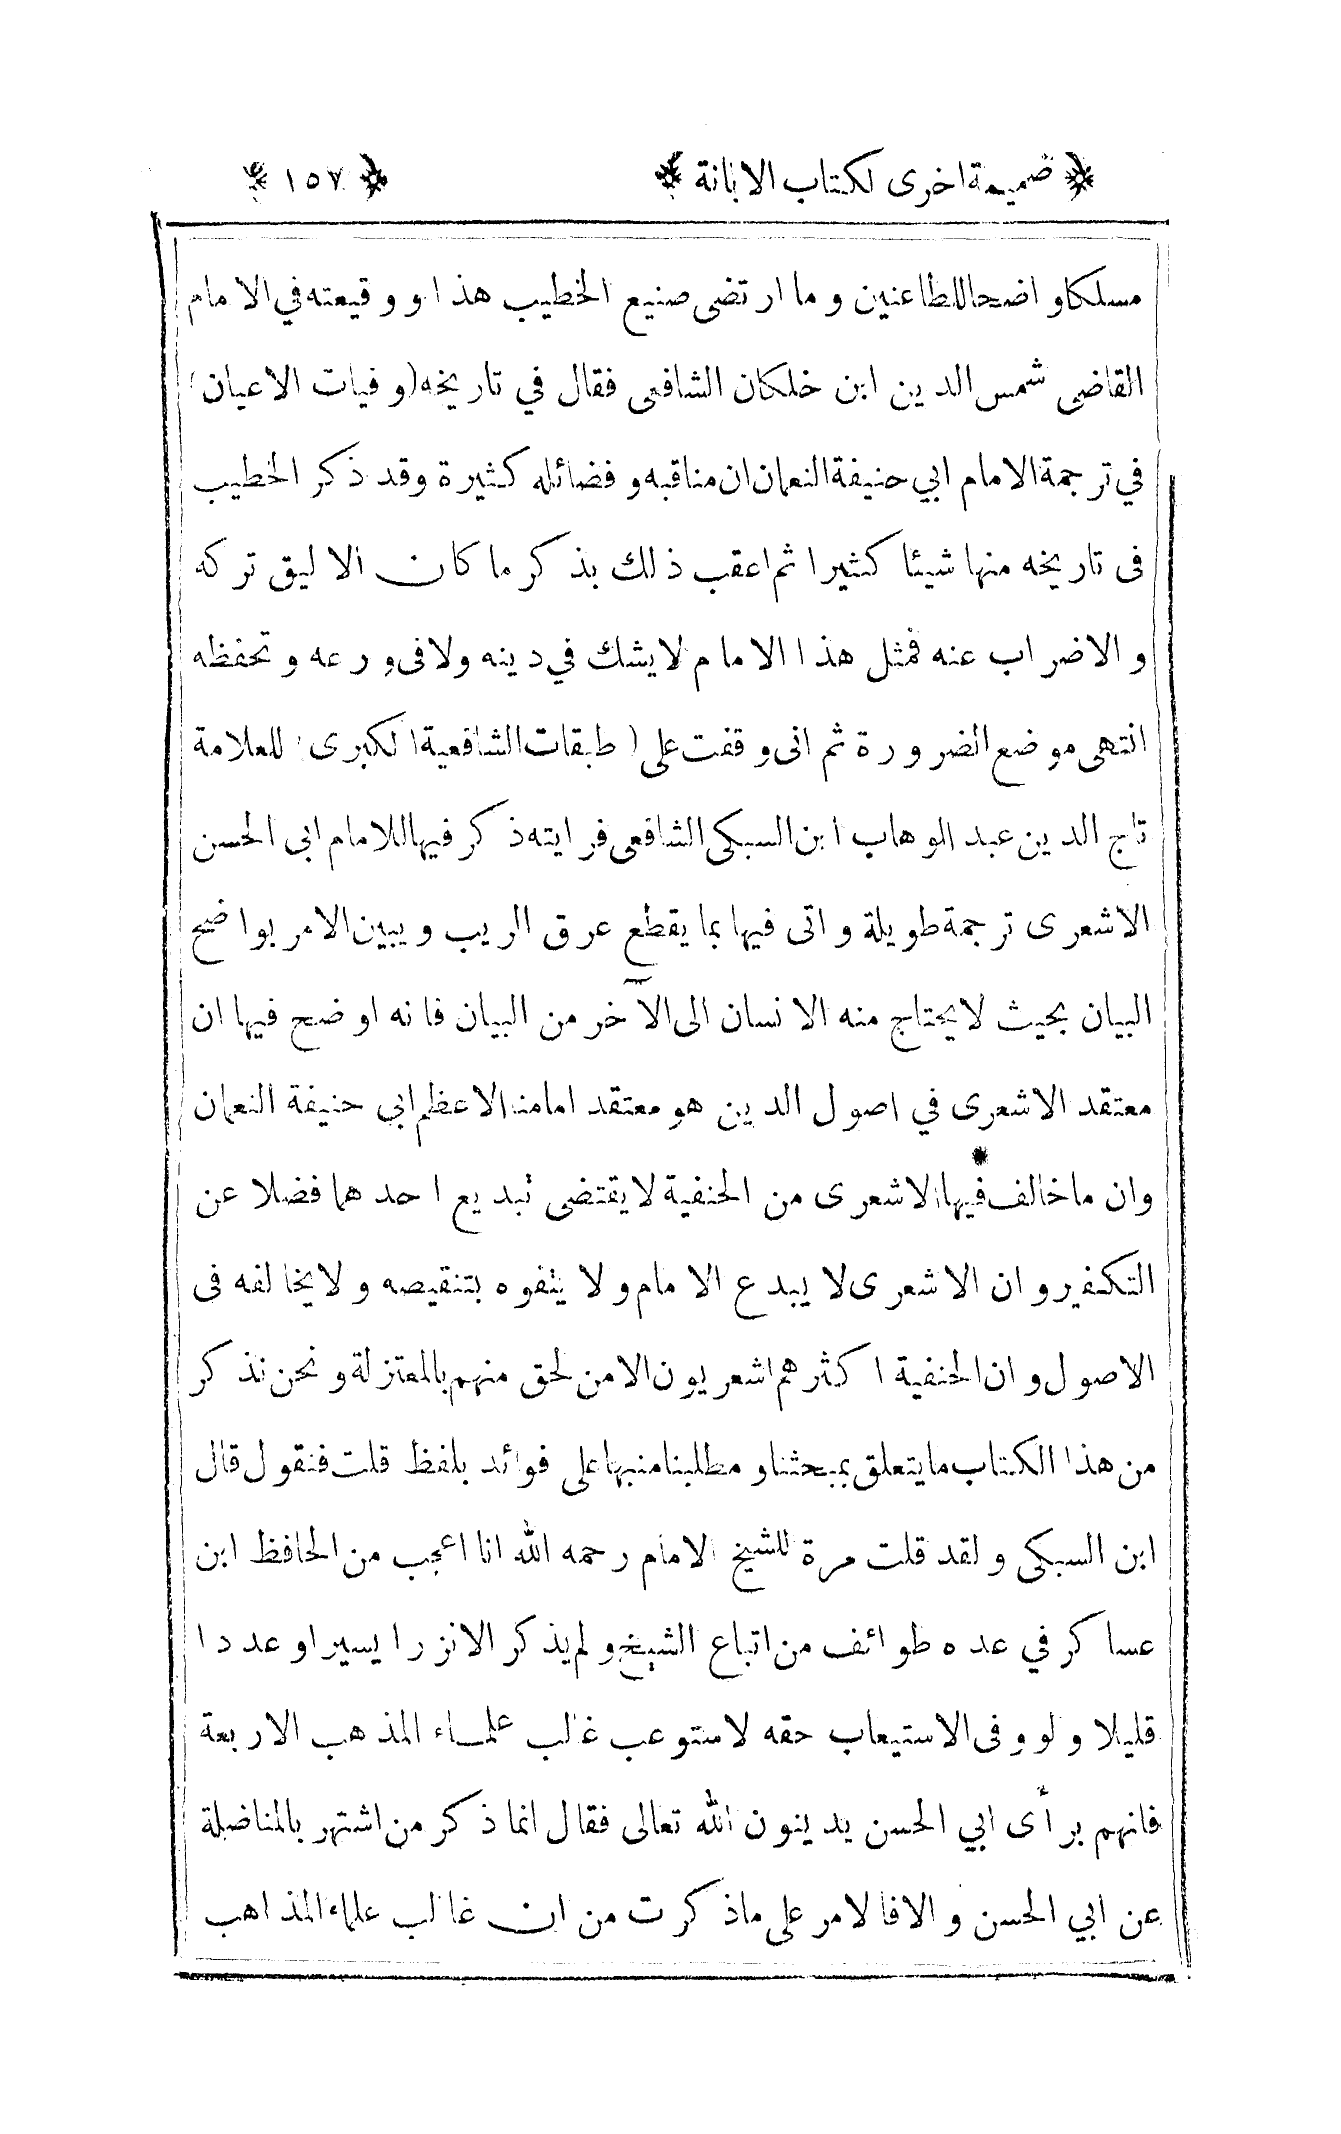 ﴿ ضميمة اخرى لكتاب الابانة ﴾ ﴿ ١٥٧ ﴾
مسلكا واضحا للطاعنين وما ارتضى صنيع الخطيب هذا ووقيعته في الامام
القاضى شمس الدين ابن خلكان الشافعى فقال في تاريخه (وفيات الاعيان)
في ترجمة الامام ابي حنيفة النعمان ان مناقبه وفضائله كثيرة وقد ذكر الخطيب
فى تاريخه منها شيئا كثيرا ثم اعقب ذلك بذكر ما كان الاليق تركه
والاضراب عنه فمثل هذا الامام لايشك في دينه ولا فى ورعه وتحفظه
انتهى موضع الضرورة ثم انى وقفت على (طبقات الشافعية الكبرى) للعلامة
تاج الدين عبد الوهاب ابن السبكى الشافعى فرايته ذكر فيها للامام ابى الحسن
الاشعرى ترجمة طويلة واتى فيها بما يقطع عرق الريب ويبين الامر بواضح
البيان بحيث لا يحتاج منه الانسان الى الآخر من البيان فانه اوضح فيها ان
معتقد الاشعرى في اصول الدين هو معتقد امامنا الاعظم ابى حنيفة النعمان
وان ما خالف فيها الاشعرى من الحنفية لا يقتضى تبديع احدهما فضلا عن
التكفير وان الاشعرى لا يبدع الامام ولا يتفوه بتنقيصه ولا يخالفه فى
الاصول وان الحنفية اكثرهم اشعريون الا من لحق منهم بالمعتزلة ونحن نذكر
من هذا الكتاب ما يتعلق بمبحثنا ومطلبنا منبها على فوائد بلفظ قلت فنقول قال
ابن السبكى ولقد قلت مرة للشيخ الامام رحمه الله انا اعجب من الحافظ ابن
عساكر في عده طوائف من اتباع الشيخ ولم يذكر الا نزرا يسيرا وعددا
قليلا ولو وفى الاستيعاب حقه لاستوعب غالب علماء المذهب الاربعة
فانهم برأى ابي الحسن يدينون الله تعالى فقال انما ذكر من اشتهر بالمناضلة
عن ابي الحسن والا فالامر على ماذكرت من ان غالب علماء المذاهب